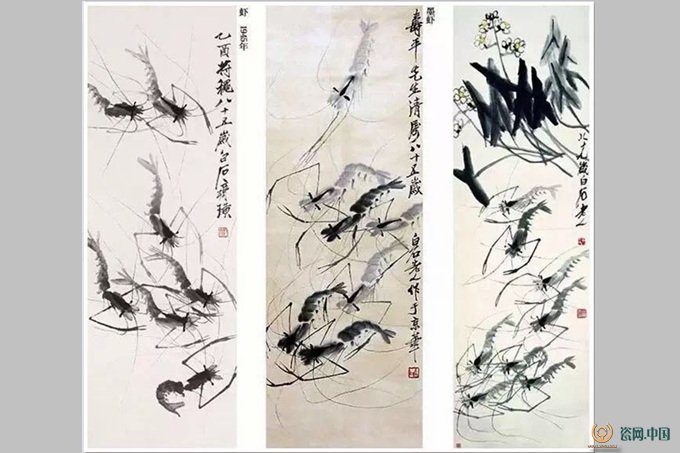 虾 1945年
乙酉将穐八十五岁白石齐璜
墨虾
寿平先生清属八十五岁
白石老人作于京华
八十九岁白石老人
瓷网.中国